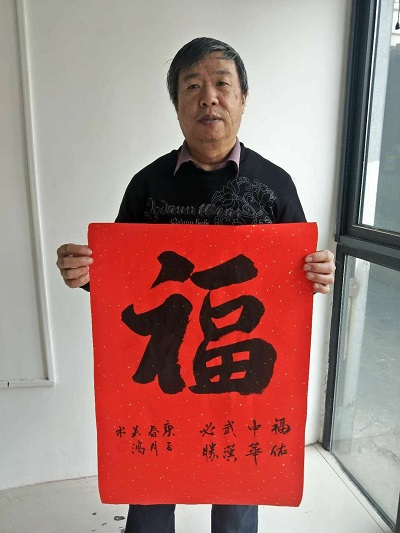 福
福佑
中華
武漢
必勝
庚子
春月